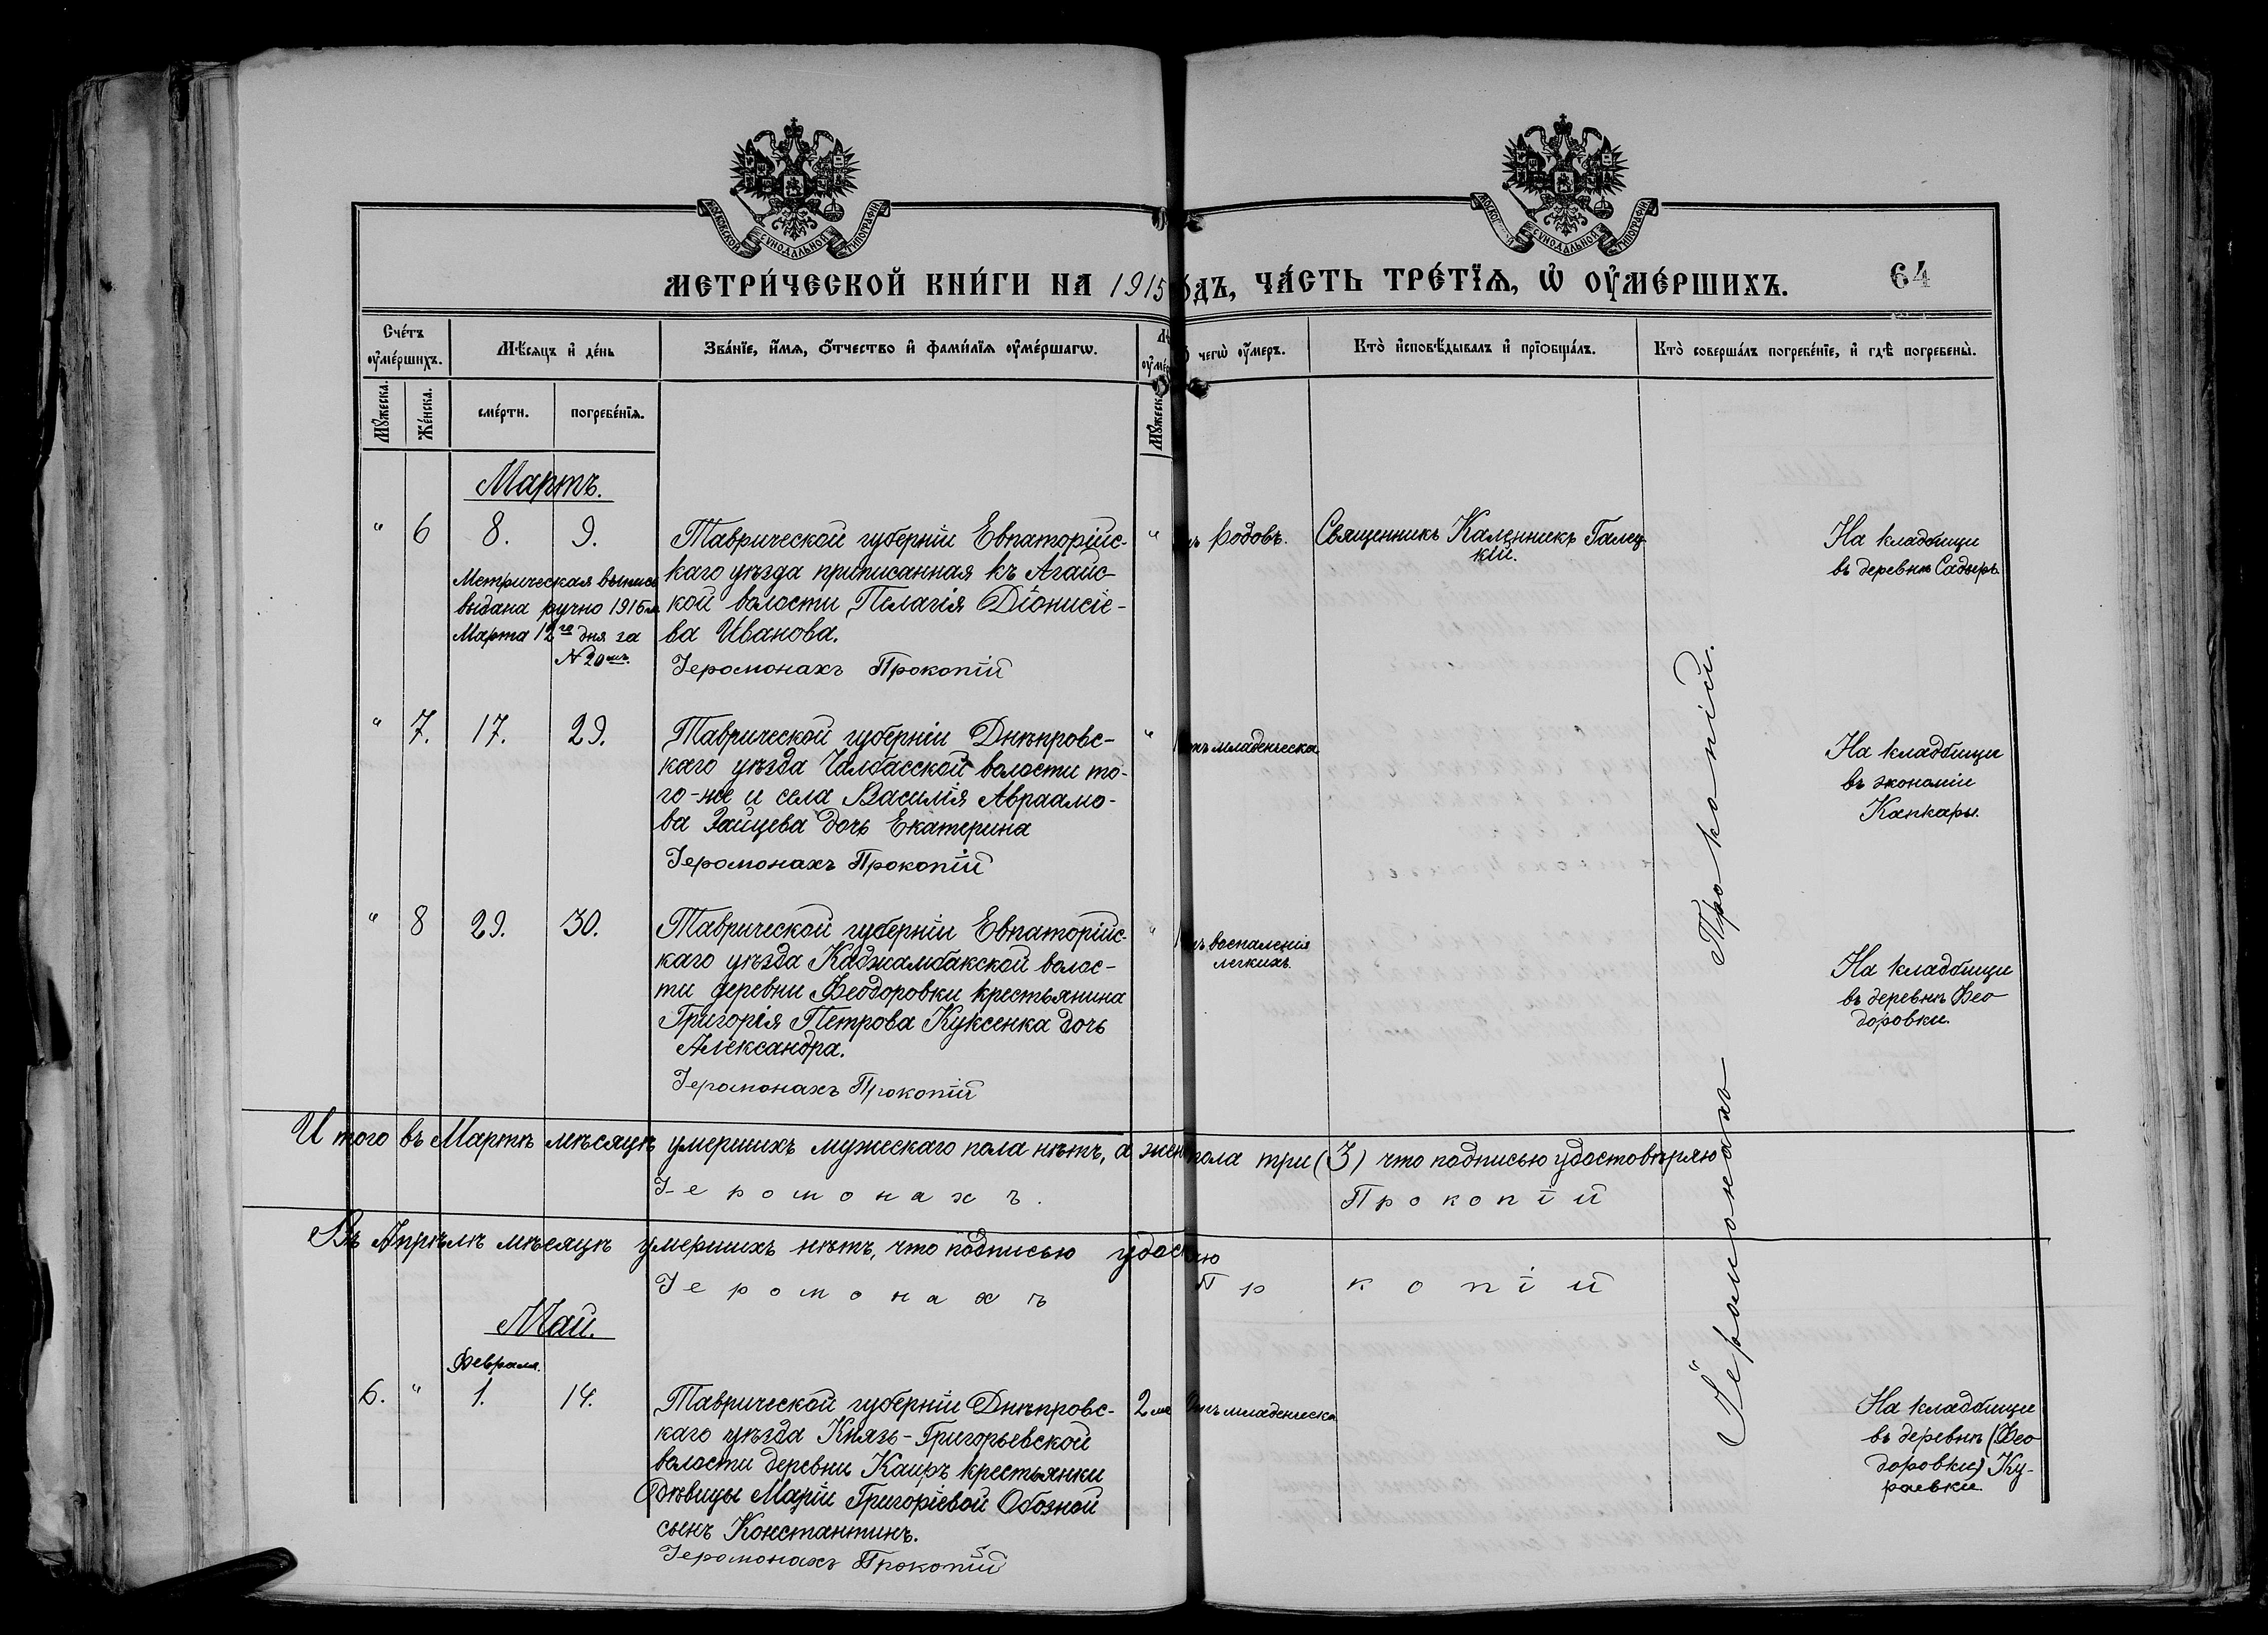 МОСКОВСКОЙ СУНОДАЛЬНОЙ ТИПОГРАФІИ
МОСКОВСКОЙ СУНОДАЛЬНОЙ ТИПОГРАФІИ
МЕТРИ́ЧЕСКОЙ КНИ́ГИ НА 1915 ОДЪ, ЧА́СТЬ ТРЕ́ТЇѦ, Ѡ҆ ОУ҆МЕ́РШИХЪ. 64
Сче́тъ оу҆ме́ршихъ.
Мѣ́сяцъ и҆ де́нь
Зва́нїе, и҆́мя, ѻ҆́тчество и҆ фами́лїя оу҆ме́ршагѡ.
чегѡ̀ оу҆́меръ.
Кто̀ и҆сповѣ́дывалъ и҆ прїѻбща́лъ.
Кто̀ соверша́лъ погребе́нїе, и҆ гдѣ̀ погребены̀.
Му́жеска.
Же́нска.
сме́рти.
погребе́нїя.
Му́жеск
Мартъ.
" 6 8. 9.
Таврической губерніи Евпаторійс-
каго уѣзда приписанная къ Агайс-
кой волости Пелагія Діонисіе-
ва Иванова.
Іеромонахъ Прокопій
Метрическая выпись
выдана ручно 1916 г.
Марта 12го дня за
№ 20мъ.
" родовъ. Священникъ Каленникъ Галец-
кій.
На кладбищи
въ деревнѣ Садыръ
" 7. 17. 29.
Таврической губерніи Днѣпровс-
каго уѣзда Чалбасской волости то-
го-же и села Василія Авраамо-
ва Зайцева дочь Екатерина
Іеромонахъ Прокопій
" младенческа
На кладбищи
въ экономіи
Канкары.
" 8 29. 30.
Таврической губерніи Евпаторійс-
каго уѣзда Каджамбакской волос-
ти деревни Феодоровки крестьянина
Григорія Петрова Куксенка дочь
Александра.
Іеромонахъ Прокопій
" воспаленія
легкихъ.
На кладбищи
въ деревнѣ Фео-
доровки.
Итого въ Мартѣ мѣсяцѣ умершихъ мужескаго пола нѣтъ, а жен пола три (3) что подписью удостовѣряю
Іеромонахъ. Прокопій
Въ Апрѣлѣ мѣсяцѣ умершихъ нѣтъ, что подписью удос
Іеромонахъ Пр копій
Май.
Февраля.
6. " 1. 14.
Таврической губерніи Днѣпровс-
каго уѣзда Князь-Григорьевской
волости деревни Каиръ крестьянки
дѣвицы Маріи Григоріевой Обозной
сынъ Константинъ.
Іеромонахъ Прокопій
2 младенческа
На кладбищи
въ деревнѣ (Фео
доровки) Ку-
раевки
Іеромонахъ Прокопій.